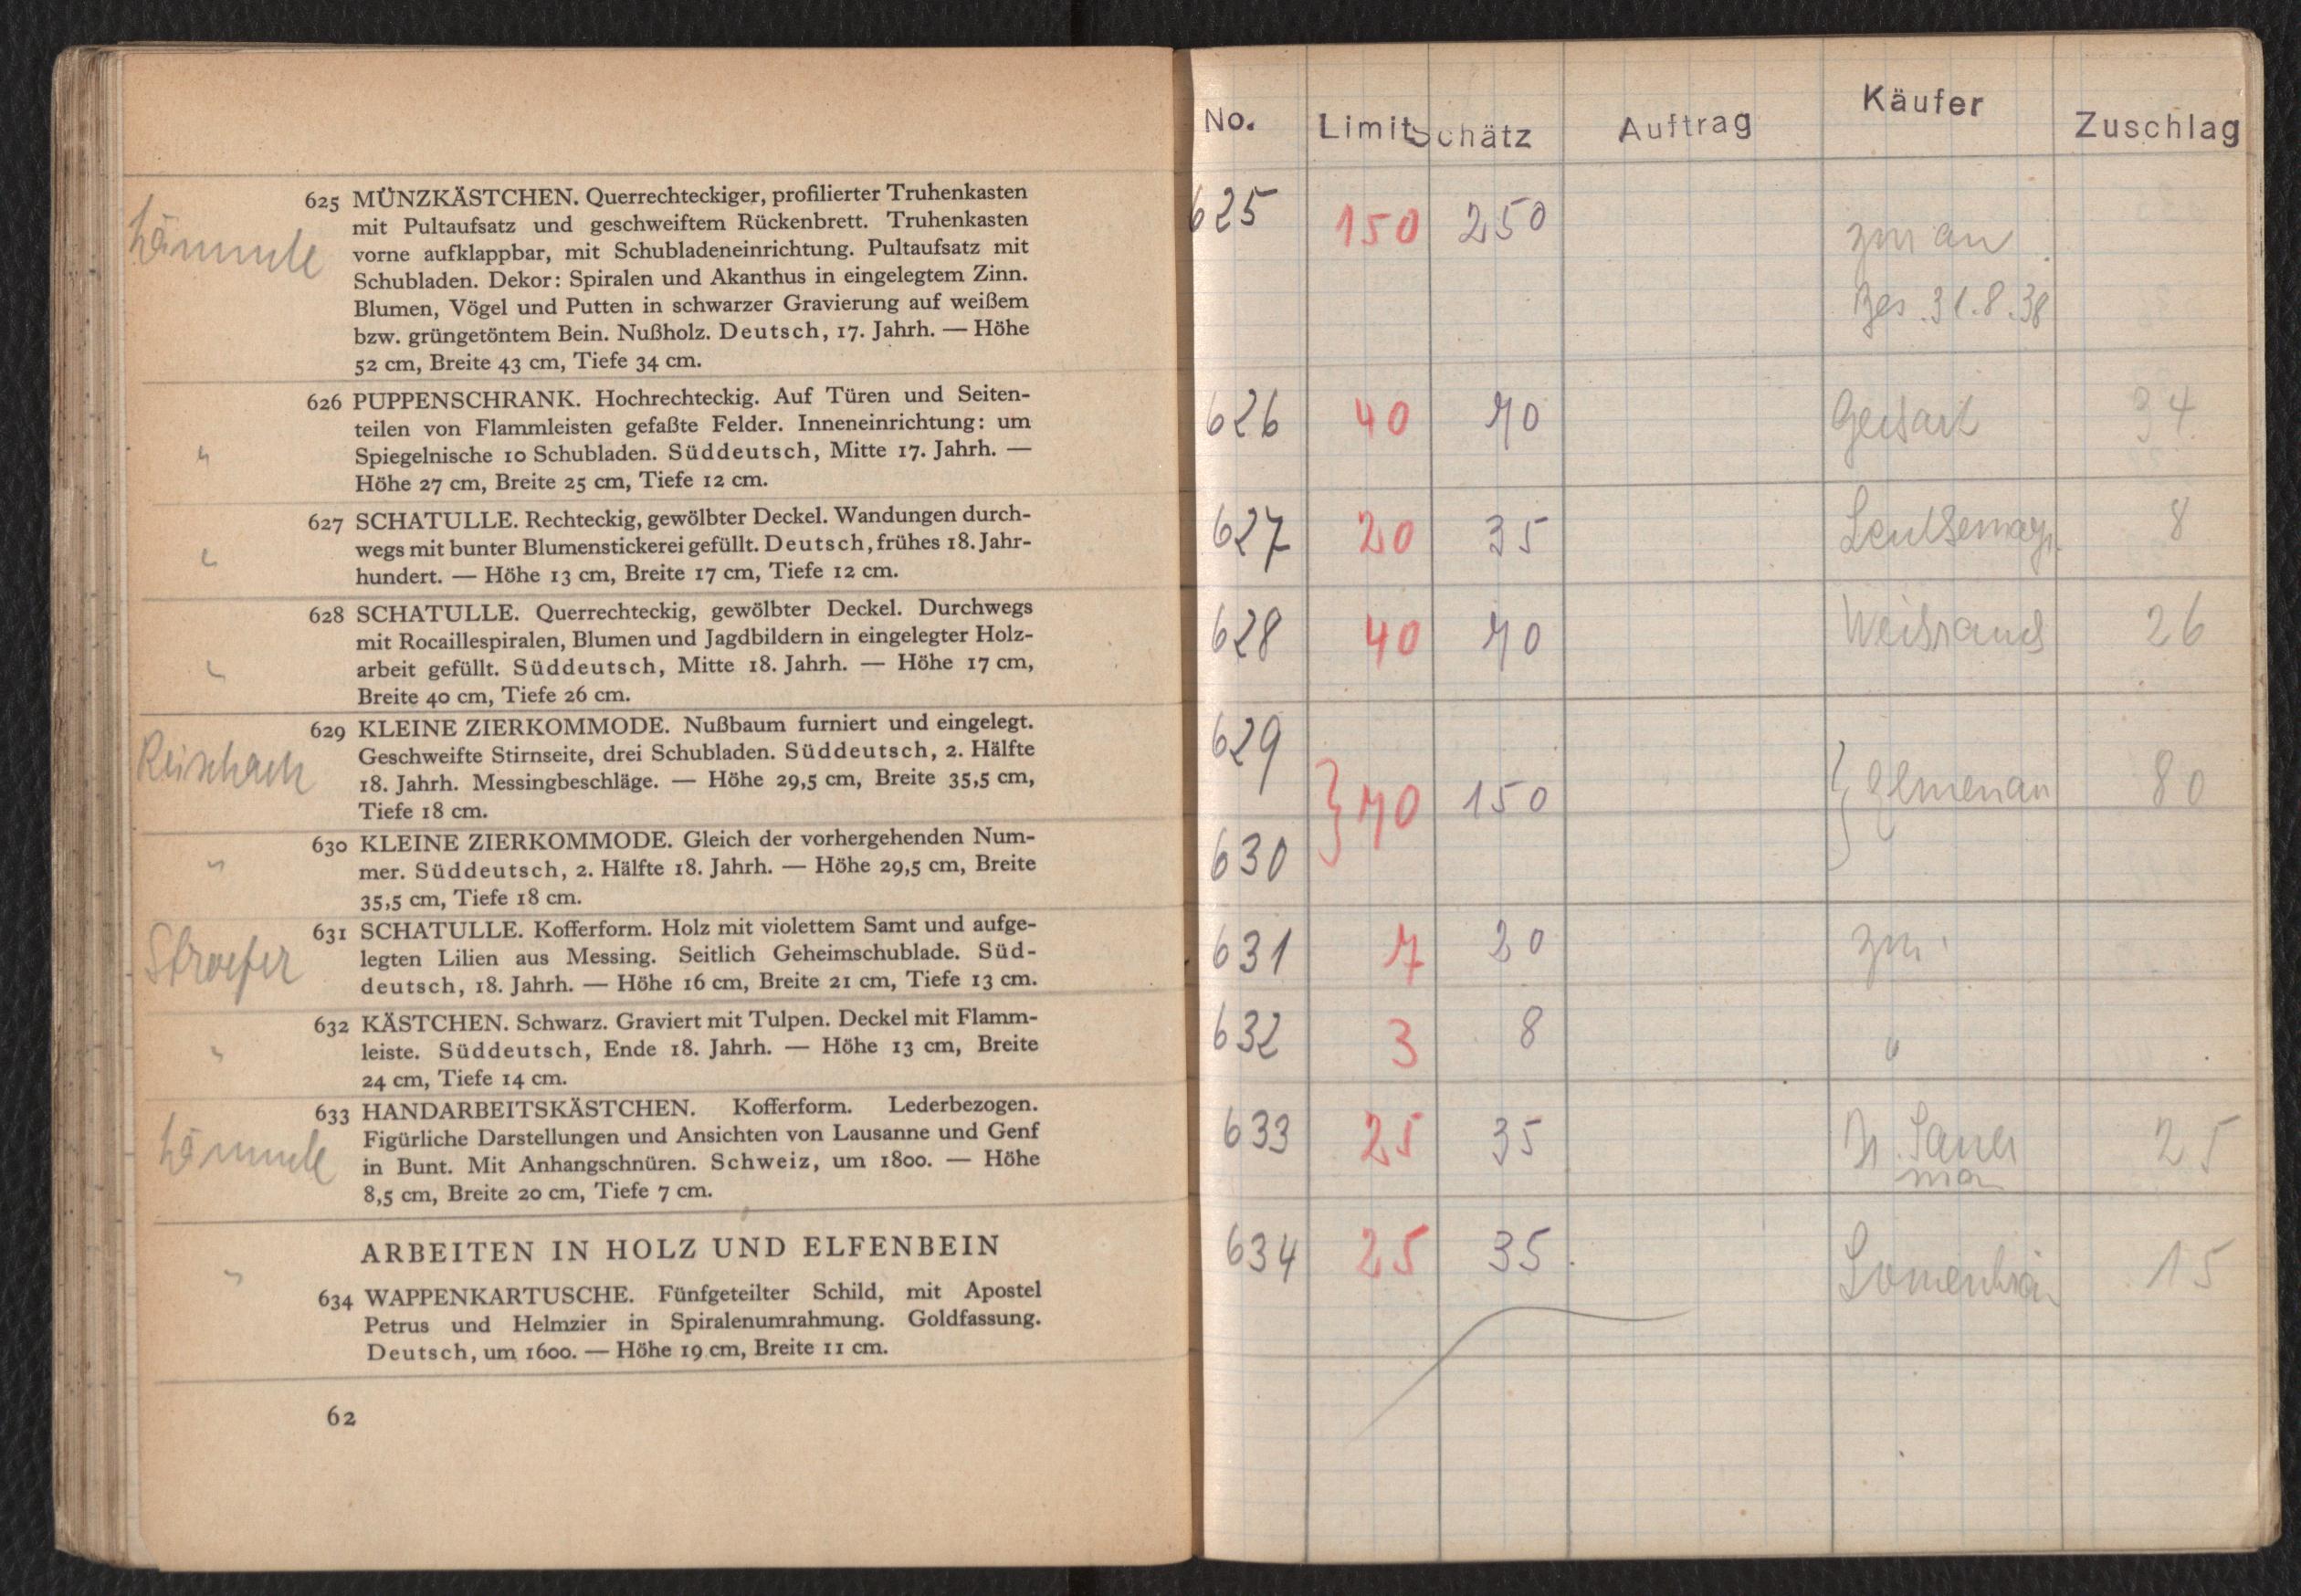 Lämmle
625 MÜNZKÄSTCHEN. Querrechteckiger, profilierter Truhenkasten
mit Pultaufsatz und geschweiftem Rückenbrett. Truhenkasten
vorne aufklappbar, mit Schubladeneinrichtung. Pultaufsatz mit
Schubladen. Dekor: Spiralen und Akanthus in eingelegtem Zinn.
Blumen, Vögel und Putten in schwarzer Gravierung auf weißem
bzw. grüngetöntem Bein. Nußholz. Deutsch, 17. Jahrh. — Höhe
52 cm, Breite 43 cm, Tiefe 34 cm.
"
626 PUPPENSCHRANK. Hochrechteckig. Auf Türen und Seiten-
teilen von Flammleisten gefaßte Felder. Inneneinrichtung: um
Spiegelnische 10 Schubladen. Süddeutsch, Mitte 17. Jahrh. —
Höhe 27 cm, Breite 25 cm, Tiefe 12 cm.
"
627 SCHATULLE. Rechteckig, gewölbter Deckel. Wandungen durch-
wegs mit bunter Blumenstickerei gefüllt. Deutsch, frühes 18. Jahr-
hundert. — Höhe 13 cm, Breite 17 cm, Tiefe 12 cm.
"
628 SCHATULLE. Querrechteckig, gewölbter Deckel. Durchwegs
mit Rocaillespiralen, Blumen und Jagdbildern in eingelegter Holz-
arbeit gefüllt. Süddeutsch, Mitte 18. Jahrh. — Höhe 17 cm,
Breite 40 cm, Tiefe 26 cm.
Reischach
629 KLEINE ZIERKOMMODE. Nußbaum furniert und eingelegt.
Geschweifte Stirnseite, drei Schubladen. Süddeutsch, 2. Hälfte
18. Jahrh. Messingbeschläge. — Höhe 29,5 cm, Breite 35,5 cm,
Tiefe 18 cm.
"
630 KLEINE ZIERKOMMODE. Gleich der vorhergehenden Num-
mer. Süddeutsch, 2. Hälfte 18. Jahrh. — Höhe 29,5 cm, Breite
35,5 cm, Tiefe 18 cm.
Stroefer
631 SCHATULLE. Kofferform. Holz mit violettem Samt und aufge-
legten Lilien aus Messing. Seitlich Geheimschublade. Süd-
deutsch, 18. Jahrh. — Höhe 16 cm, Breite 21 cm, Tiefe 13 cm.
"
632 KÄSTCHEN. Schwarz. Graviert mit Tulpen. Deckel mit Flamm-
leiste. Süddeutsch, Ende 18. Jahrh. — Höhe 13 cm, Breite
24 cm, Tiefe 14 cm.
Lämmle
633 HANDARBEITSKÄSTCHEN. Kofferform. Lederbezogen.
Figürliche Darstellungen und Ansichten von Lausanne und Genf
in Bunt. Mit Anhangschnüren. Schweiz, um 1800. — Höhe
8,5 cm, Breite 20 cm, Tiefe 7 cm.
ARBEITEN IN HOLZ UND ELFENBEIN
"
634 WAPPENKARTUSCHE. Fünfgeteilter Schild, mit Apostel
Petrus und Helmzier in Spiralenumrahmung. Goldfassung.
Deutsch, um 1600. — Höhe 19 cm, Breite 11 cm.
62
No. Limit Schätz Auftrag Käufer Zuschlag
625 150 250
31.8.38
626 40 70 34
627 20 35 8
628 40 70 26
629
} 70 150 } 80
630
631 7 20
632 3 8 "
633 25 35 25
634 25 35 15